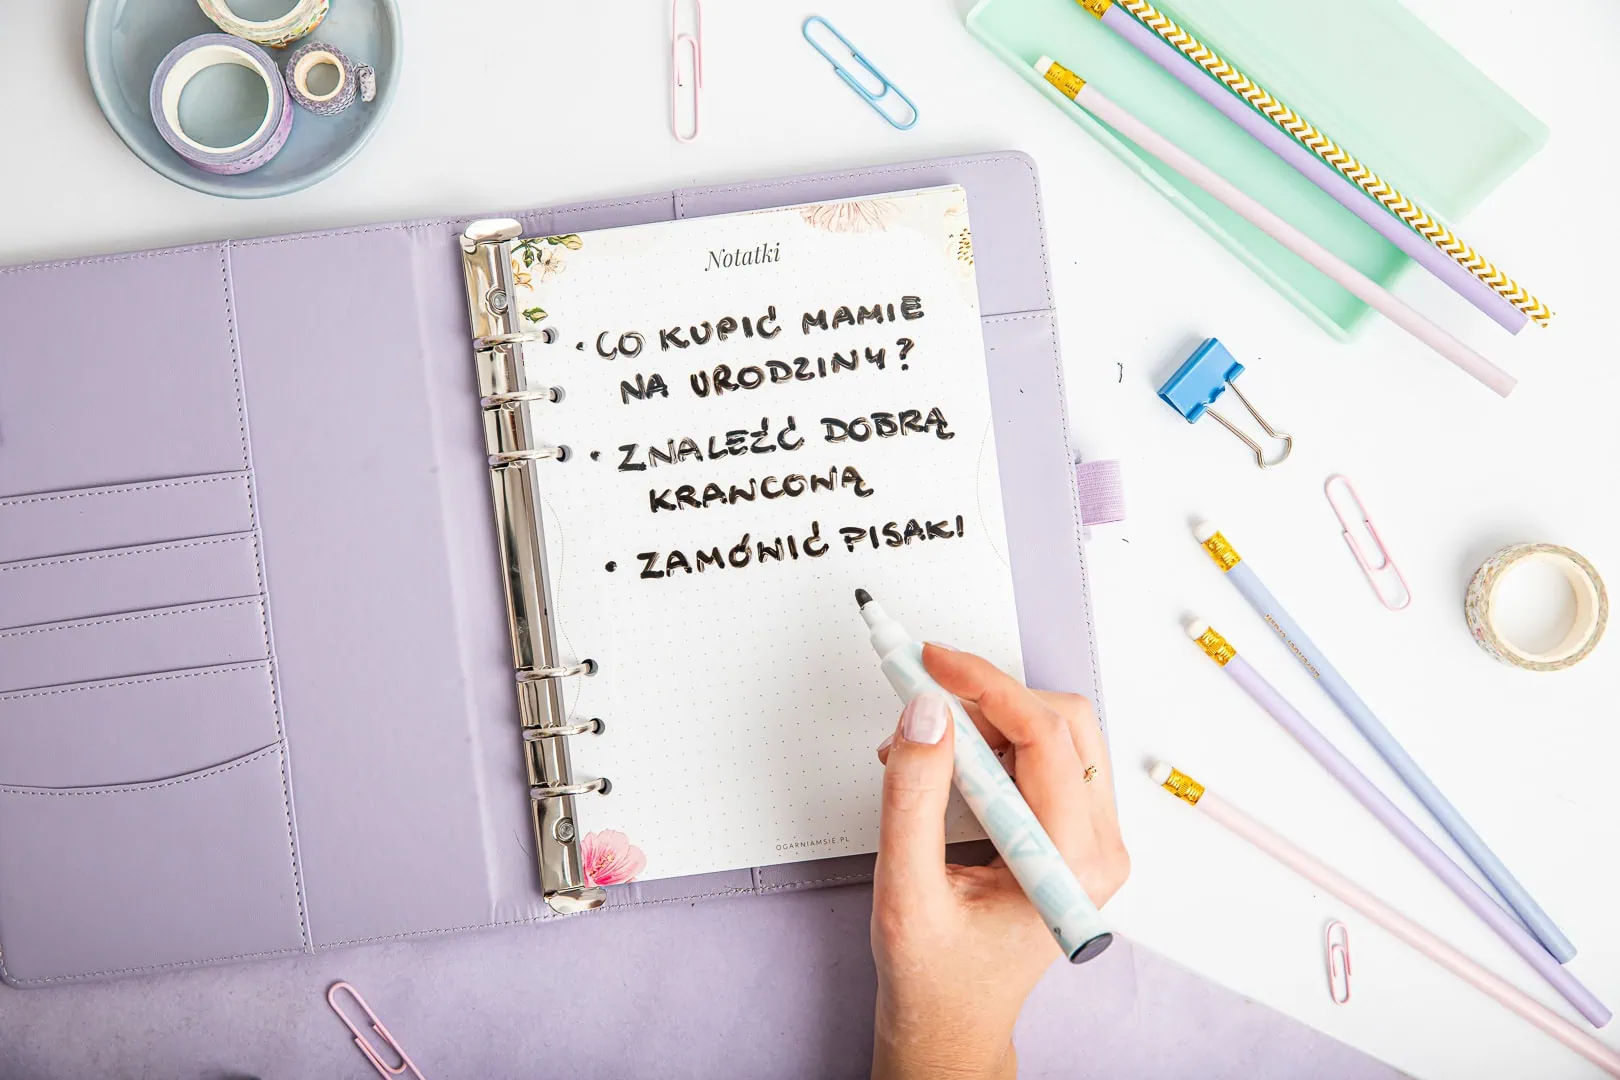 Notatki
• CO KUPIĆ MAMIE
NA URODZINY?
• ZNALEŹĆ DOBRĄ
KRAWCOWĄ
• ZAMÓWIĆ PISAKI
OGARNIAMSIE.PL